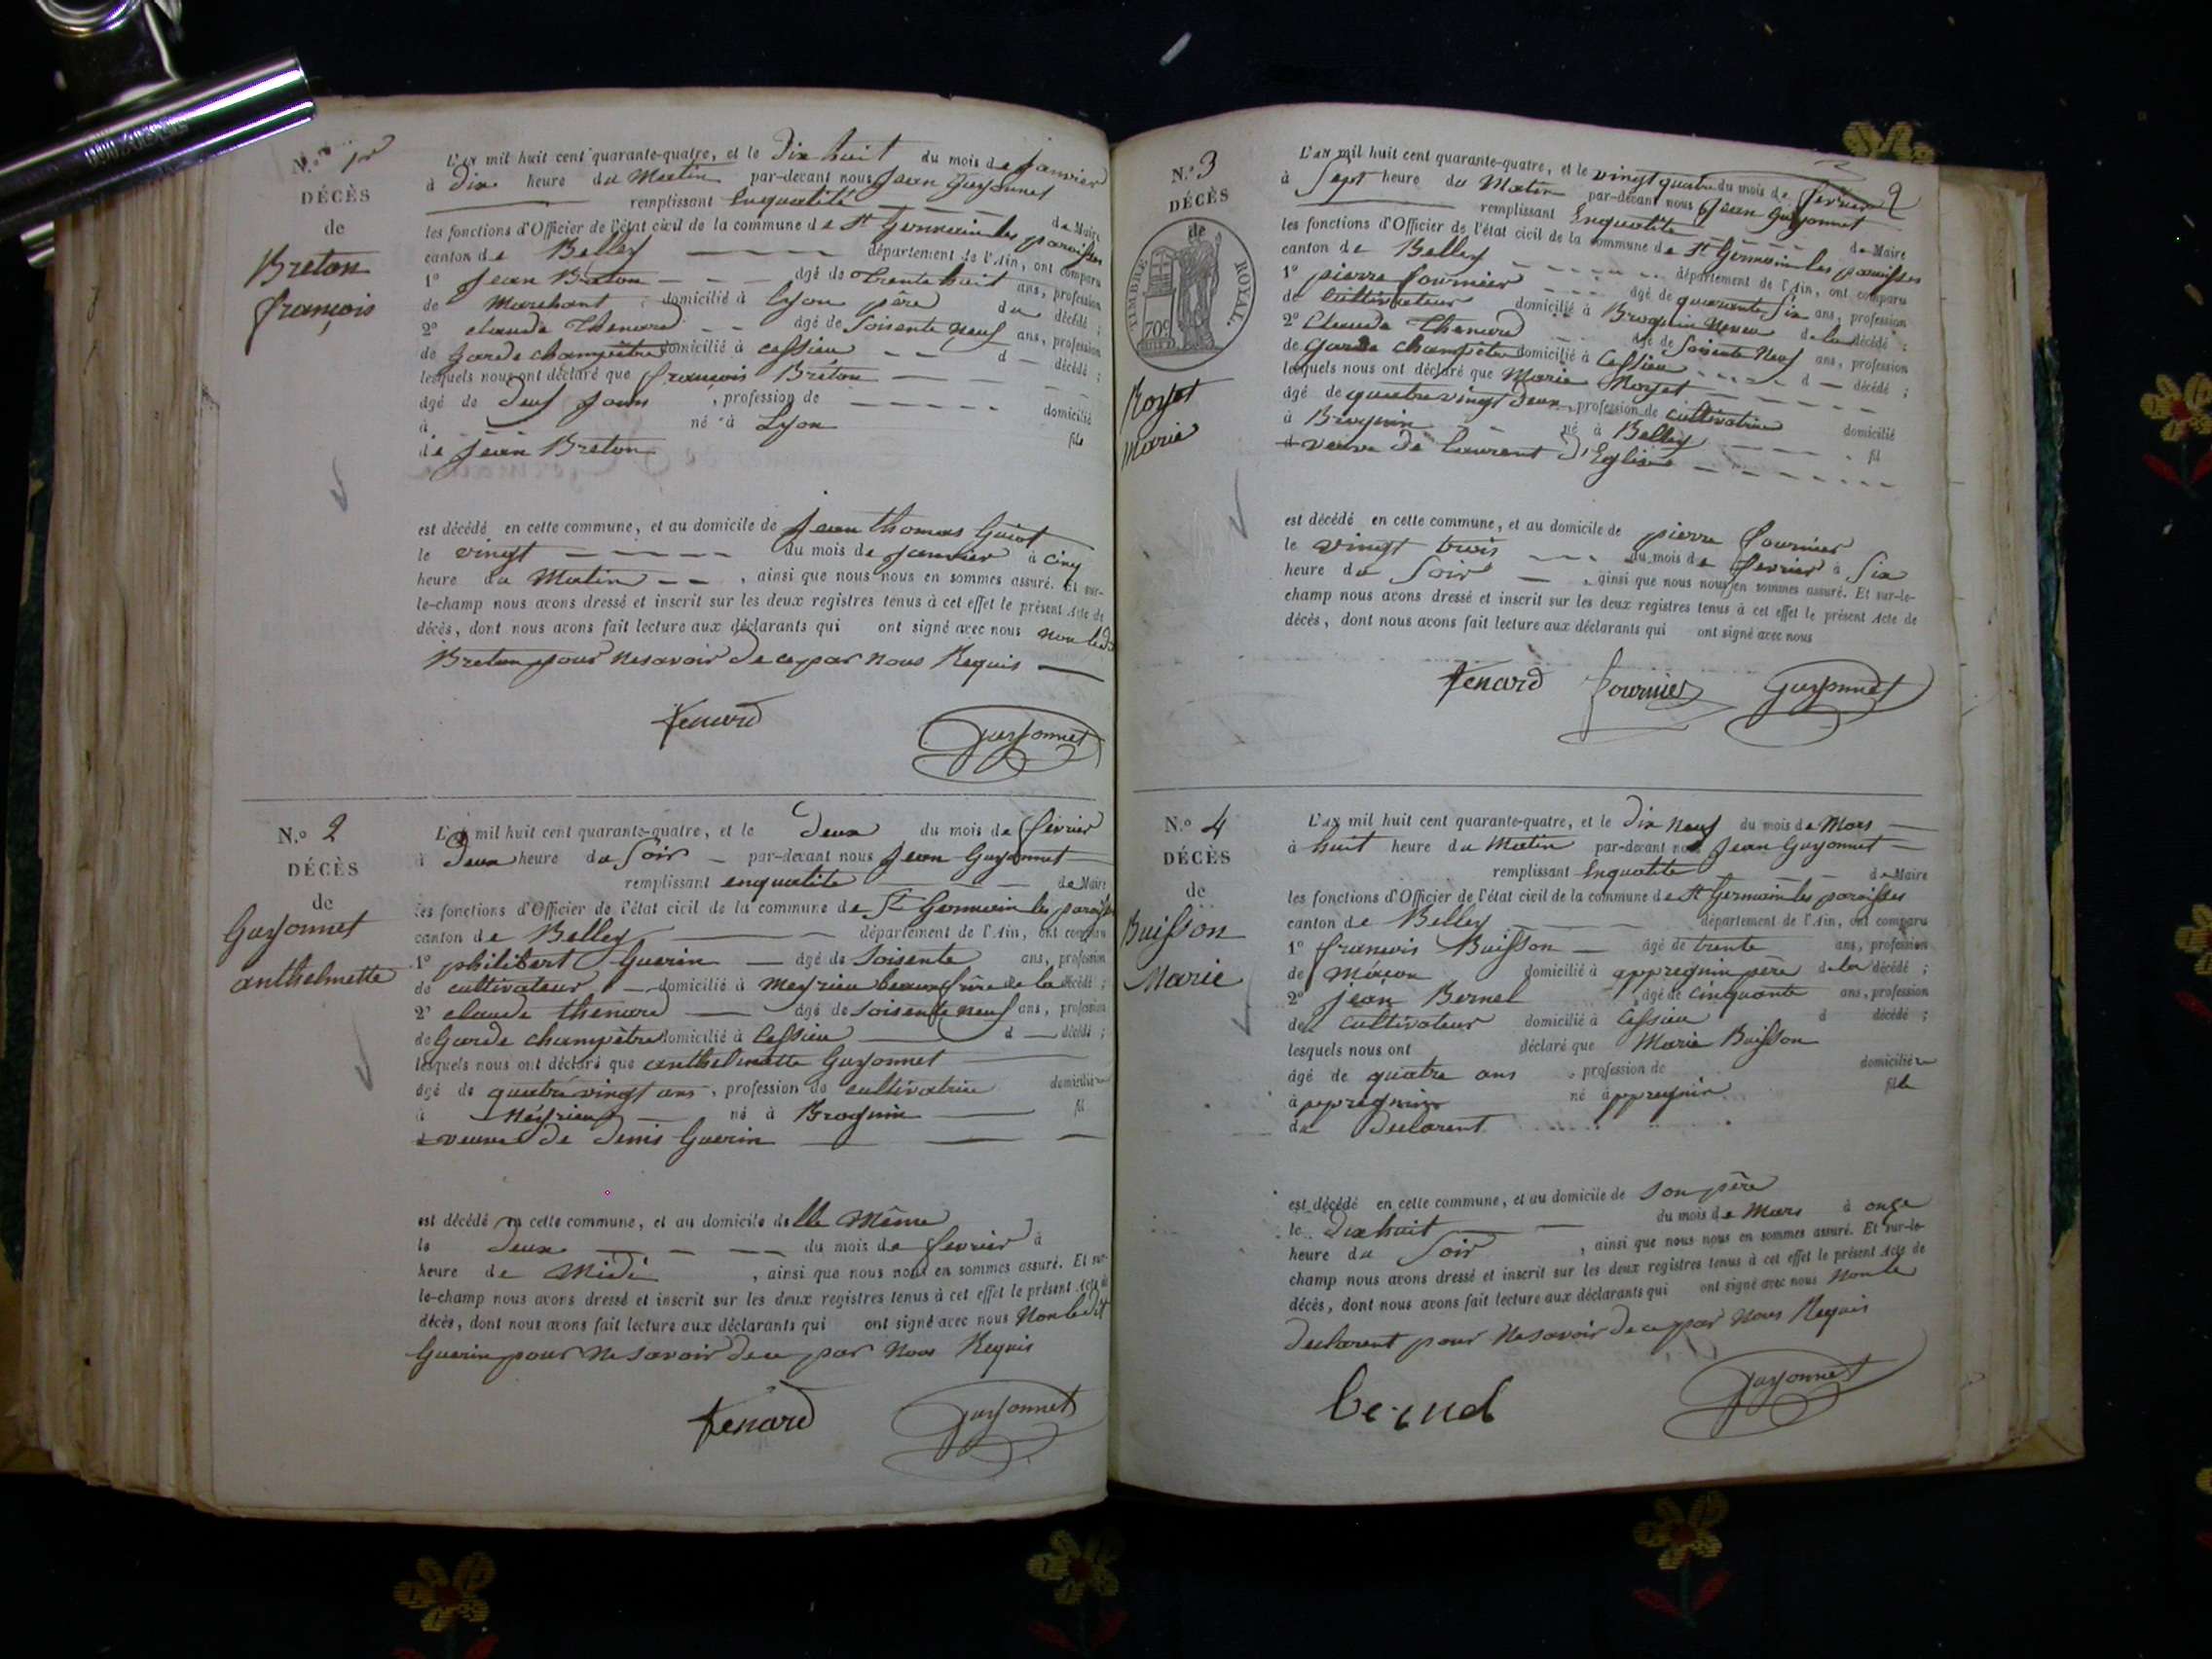 N.º 1er
DÉCÈS
de
Breton
françois
L'an mil huit cent quarante-quatre, et le Dix huit du mois de Janvier
à Dix heure du Matin par-devant nous Jean Guyonnet
remplissant Enqualité de Maire
les fonctions d'Officier de l'état civil de la commune de St Germain les paroisses
canton de Belley département de l'Ain, ont comparu
1º Jean Breton âgé de trente huit ans, profession
de Marchant domicilié à Lyon père du décédé ;
2º claude Thenard âgé de soisente neuf ans, profession
de garde champêtre domicilié à cessieu d décédé ;
lesquels nous ont déclaré que françois Breton
âgé de deuf jours , profession de domicilié
à né à Lyon fils
de Jean Breton
est décédé en cette commune, et au domicile de Jean thomas Guiot
le vingt du mois de Janvier à cinq
heure du Matin , ainsi que nous nous en sommes assuré. Et sur-
le-champ nous avons dressé et inscrit sur les deux registres tenus à cet effet le présent Acte de
décès, dont nous avons fait lecture aux déclarants qui ont signé avec nous non ledt
Breton pour nesavoir de ce par nous Requis
tenard Guyonnet
N.º 2
DÉCÈS
de
Guyonnet
anthelmette
L'an mil huit cent quarante-quatre, et le Deux du mois de fevrier
à Deux heure du Soir par-devant nous Jean Guyonnet
remplissant enqualité de Maire
les fonctions d'Officier de l'état civil de la commune de St Germain les paroisses
canton de Belley département de l'Ain, ont comparu
1º philibert Guerin âgé de soisente ans, profession
de cultivateur domicilié à Meyrieu beaux frère de la décédé ;
2º claude thenard âgé de soisente neuf ans, profession
de Garde champêtre domicilié à Cessieu d décédé ;
lesquels nous ont déclaré que anthelmette Guyonnet
âgé de quatre vingt ans , profession de cultivatrice domiciliée
à Meyrieu né à Brognin fil
d veuve de Denis Guerin
est décédé en cette commune, et au domicile delle Même
le deux du mois de fevrier à
heure de Midi , ainsi que nous nous en sommes assuré. Et sur-
le-champ nous avons dressé et inscrit sur les deux registres tenus à cet effet le présent Acte de
décès, dont nous avons fait lecture aux déclarants qui ont signé avec nous Non ledit
Guerin pour nesavoir de ce par nous Requis
tenard Guyonnet
2
N.º 3
DÉCÈS
de
TIMBRE ROYAL.
70c
Royet
Marie
L'an mil huit cent quarante-quatre, et le vingt quatre du mois de fevrier
à Sept heure du Matin par-devant nous Jean Guyonnet
remplissant Enqualité de Maire
les fonctions d'Officier de l'état civil de la commune de St Germain les paroisses
canton de Belley département de l'Ain, ont comparu
1º pierre fournier âgé de quarante Six ans, profession
de Cultivateur domicilié à Brognin Neveu de la décédé ;
2º Claude Thenard âgé de Soisente Neuf ans, profession
de Garde Champêtre domicilié à Cessieu d décédé ;
lesquels nous ont déclaré que Marie Royet
âgé de quatre vingt deux , profession de cultivatrice domicilié
à Brognin né à Belley fil
d veuve de Laurent D'Eglise
est décédé en cette commune, et au domicile de pierre fournier
le vingt trois du mois de fevrier à Six
heure du Soir , ainsi que nous nous en sommes assuré. Et sur-le-
champ nous avons dressé et inscrit sur les deux registres tenus à cet effet le présent Acte de
décès, dont nous avons fait lecture aux déclarants qui ont signé avec nous
tenard fournier Guyonnet
N.º 4
DÉCÈS
de
Buisson
Marie
L'an mil huit cent quarante-quatre, et le Dix neuf du mois de Mars
à huit heure du Matin par-devant nous Jean Guyonnet
remplissant Enqualité de Maire
les fonctions d'Officier de l'état civil de la commune de St Germain les paroisses
canton de Belley département de l'Ain, ont comparu
1º françois Buisson âgé de trente ans, profession
de Maçon domicilié à appregnin père de la décédé ;
2º jean Bernel âgé de cinquante ans, profession
de cultivateur domicilié à Cessieu d décédé ;
lesquels nous ont déclaré que Marie Buisson
âgé de quatre ans , profession de domiciliée
à appregnin né à appregnin fille
du Declarent
est décédé en cette commune, et au domicile de son père
le Dix huit du mois de Mars à onze
heure du Soir , ainsi que nous nous en sommes assuré. Et sur-le-
champ nous avons dressé et inscrit sur les deux registres tenus à cet effet le présent Acte de
décès, dont nous avons fait lecture aux déclarants qui ont signé avec nous Non le
Declarent pour Nesavoir de ce par nous Requis
Guyonnet